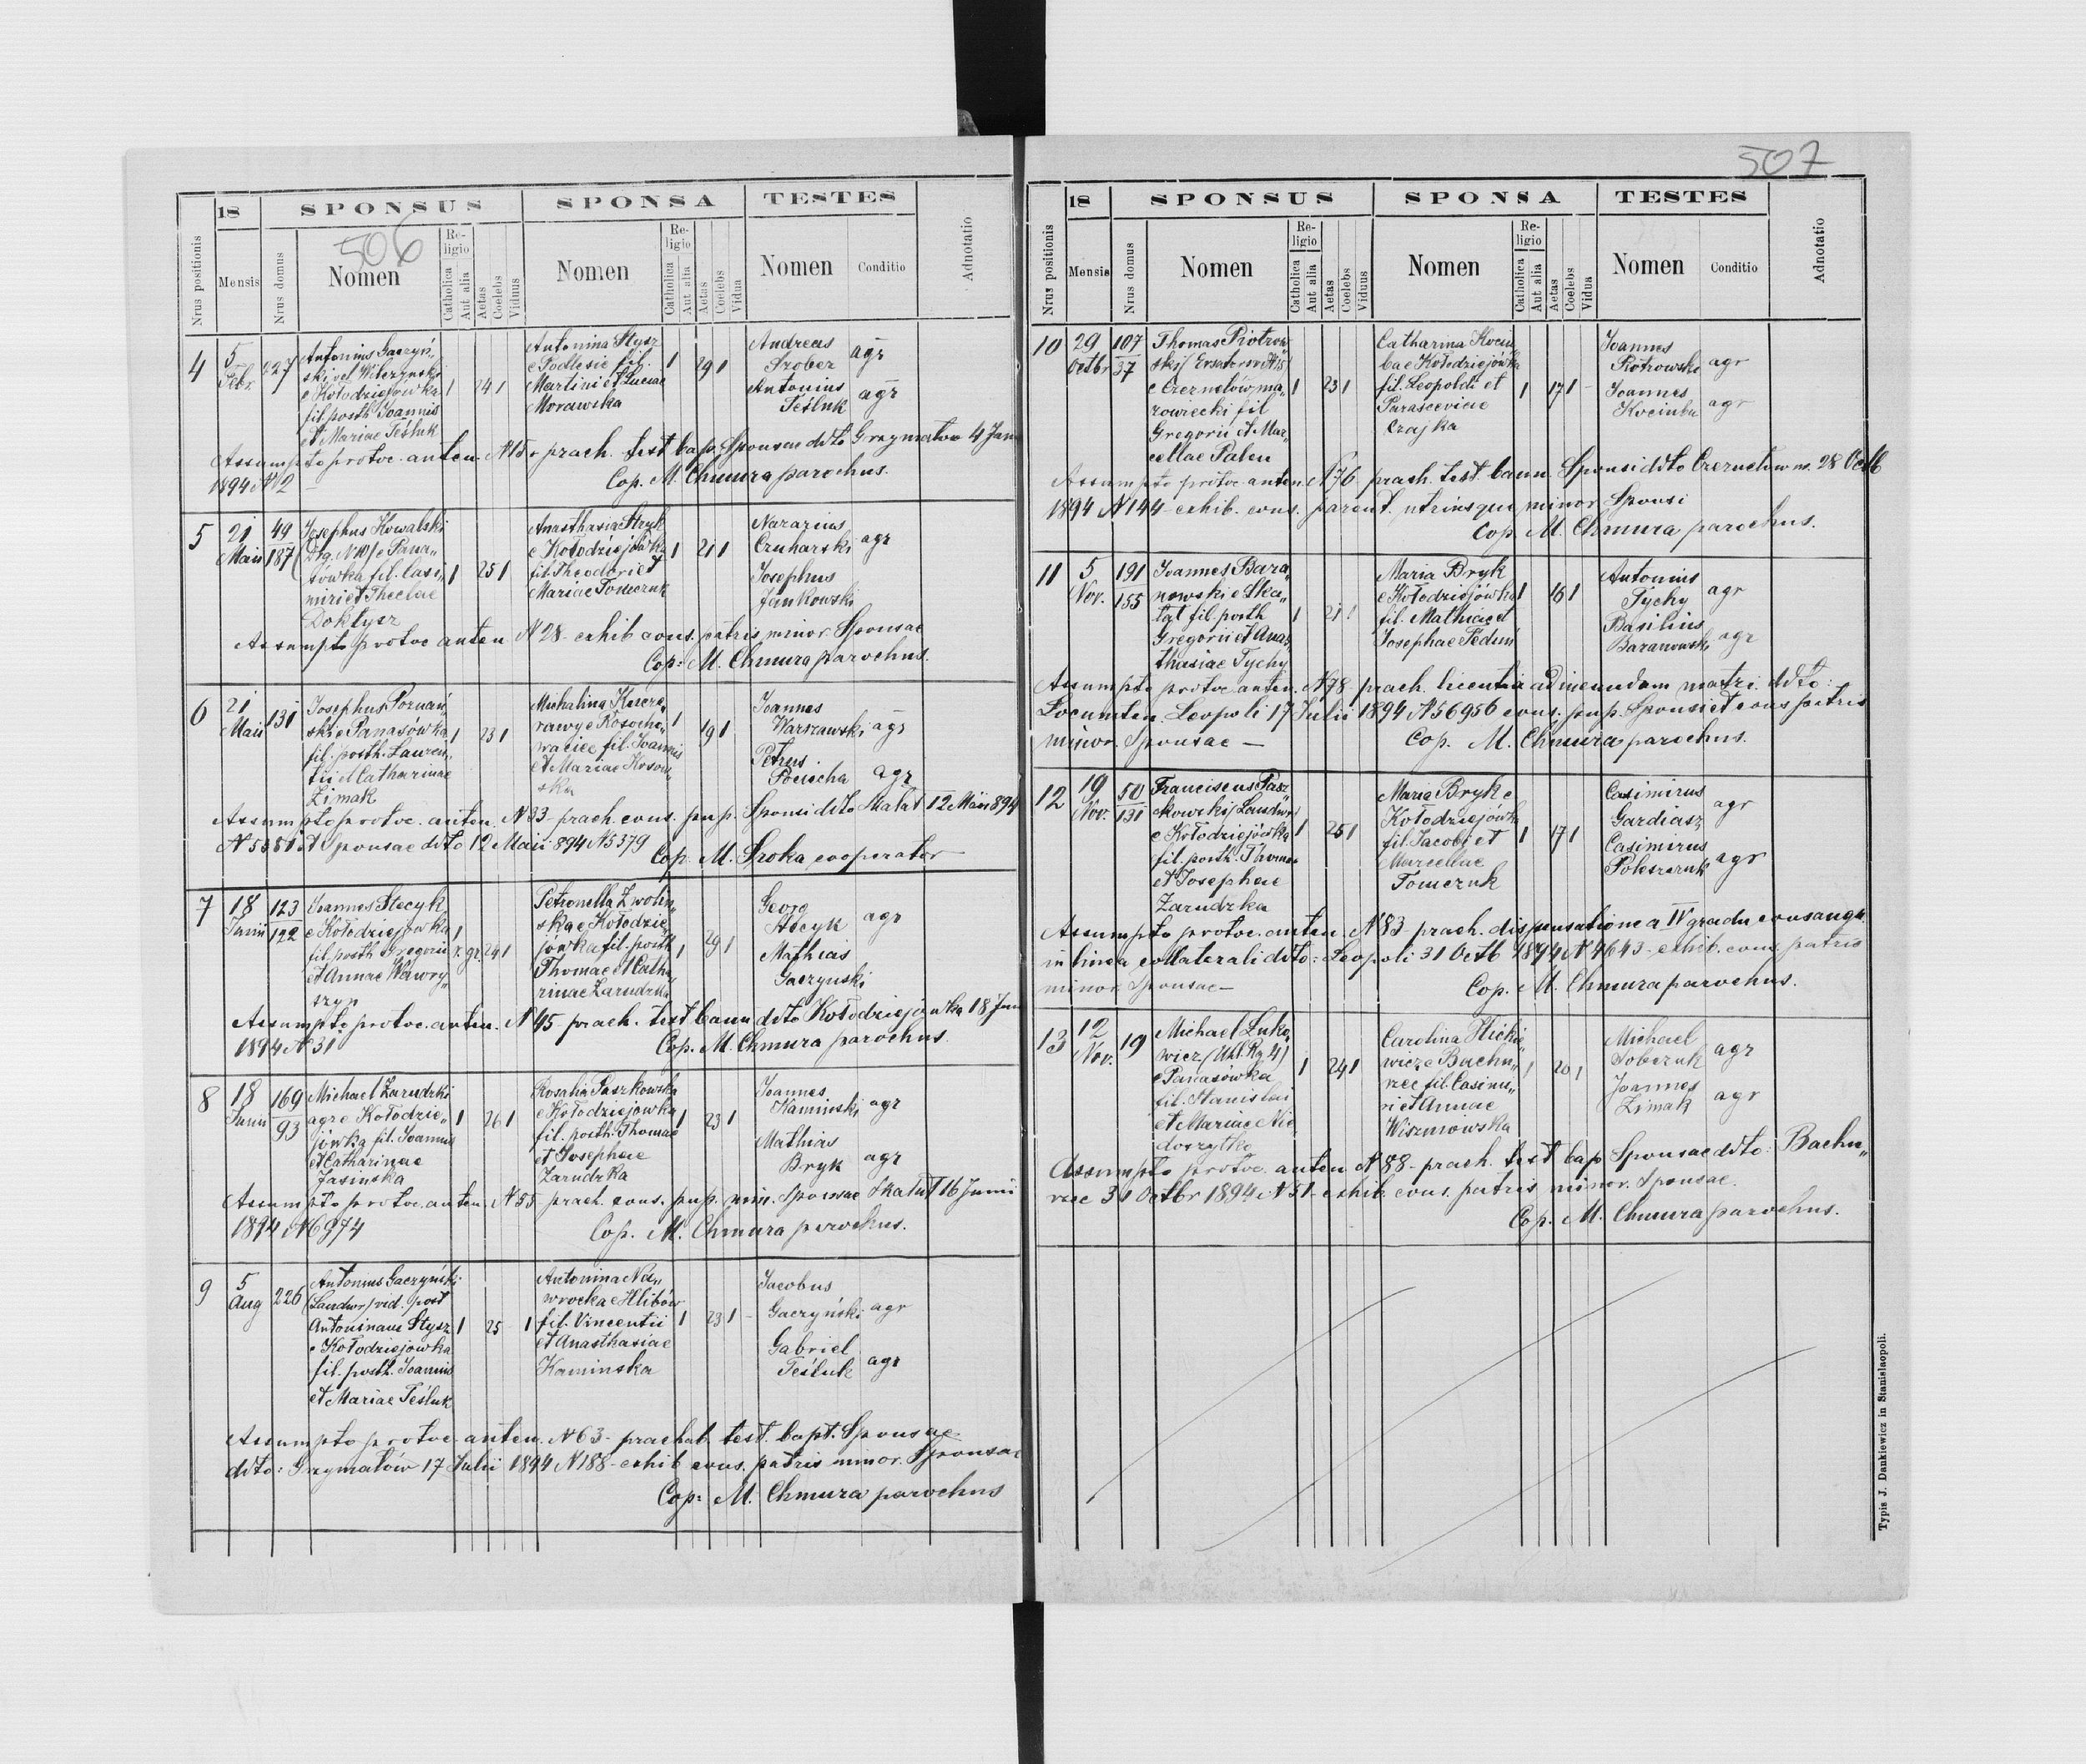 506
18
SPONSUS
SPONSA
TESTES
Nrus positionis
Mensis
Nrus domus
Nomen
Religio
Catholica
Aut alia
Aetas
Coelebs
Viduus
Nomen
Religio
Catholica
Aut alia
Aetas
Coelebs
Vidua
Nomen
Conditio
Adnotatio
4
5
Febr
227
Antonius Gaczyń„
ski vel Wilczynski
e Kołodziejówka
fil. posth Joannis
et Mariae Teśluk
1
24 1
Antonina Stysz
e Podlesie fil.
Martini et Luciae
Morawska
1
19 1
Andreas
Srober
agr
Antonius
Teśluk
agr
Assumpto protoc. anten. N 15. prach. test bap. Sponsae ddto Grzymałów 4 Jan
1894 N 2 —
Cop. M. Chmura parochus.
5
21
Maii
49
187
Josephus Kowalski
e Pana„
sówka fil. Casi„
miri et Theclae
Doktysz
1
25 1
Anasthasia Stryk
e Kołodziejówka
fil. Theodori et
Mariae Tomczuk
1
21 1
Nazarius
agr
Josephus
Jankowski
Assumpto protoc anten N 28 - exhib cons. patris minor. Sponsae
Cop: M. Chmura parochus.
6
21
Maii
131
Josephus Poznań„
ski e Panasówka
fil. posth. Lauren„
tii et Catharinae
Zimak
1
23 1
Michalina
fil. Joannis
et Mariae Kosow„
ska
1
19 1
Joannes
Warszawski
agr
Petrus
Pociecha
agr
Assumpto protoc. anten. N 33 - prach. cons. pup. Sponsi ddto Skałat 12 Maii 894
N 5381 et Sponsae ddto 12 Maii 894 N 5379
Cop. M. Sroka cooperator
7
18
Junii
123
122
Joannes Stecyk
e Kołodziejówka
fil. posth Gregorii
et Annae Wawry„
szyn
1
r. gr.
24 1
Petronella Zwoliń„
ska e Kołodzie„
jówka fil. posth
Thomae et Catha„
rinae Zarudzka
1
29 1
Georg
Stecyk
agr
Mathias
Gaczynski
Assumpto protoc. anten. N 45 prach. test bann. ddto Kołodziejówka 18 Jun
1894 N 31
Cop. M. Chmura parochus.
8
18
Junii
169
93
Michael Zarudzki
agr e Kołodzie„
jówka fil. Joannis
et Catharinae
Jasinska
1
26 1
Rosalia Paszkowska
e Kołodziejówka
fil. posth. Thomae
et Josephae
Zarudzka
1
23 1
Joannes
Kaminski
agr
Mathias
Bryk
agr
Assumpto protoc. anten. N 55 prach. cons. pup. min. Sponsae Skałat 16 Junii
1894 N 6974
Cop. M. Chmura parochus.
9
5
Aug
226
Antonius Gaczyński
(Landwr) vid. post
Antoninam Stysz
e Kołodziejówka
fil. posth. Joannis
et Mariae Teśluk
1
25
1
Antonina Na„
wrocka e Hlibów
fil. Vincentii
et Anasthasiae
Kaminska
1
23 1
Jacobus
Gaczyński
agr
Gabriel
Teśluk
agr
Assumpto protoc. anten. N 63 - prachab. test. bapt. Sponsae
ddto: Grzymałów 17 Julii 1894 N 188 - exhib cons. patris minor. Sponsae
Cop: M. Chmura parochus
507
18
SPONSUS
SPONSA
TESTES
Nrus positionis
Mensis
Nrus domus
Nomen
Religio
Catholica
Aut alia
Aetas
Coelebs
Viduus
Nomen
Religio
Catholica
Aut alia
Aetas
Coelebs
Vidua
Nomen
Conditio
Adnotatio
10
29
Octbr
107
37
Thomas Piotrow„
ski
e Czernelów ma„
zowiecki fil
Gregorii et Mar„
cellae Paluu
1
23 1
Catharina Kociu„
ba e Kołodziejówka
fil. Leopoldi et
Parasceviae
Czajka
1
17 1
Joannes
Piotrowski
agr
Joannes
Kociuba
agr
Assumpto protoc. anten. N 76 - prach. test. bann. Sponsi ddto Czernelów m. 28 Octb
1894 N 144 - exhib. cons. parent. utriusque minor. Sponsi
Cop. M. Chmura parochus.
11
5
Nov.
191
155
Joannes Bara„
nowski e Ska„
łat fil. posth
Gregorii et Anas„
thasiae Tychy
1
21 1
Maria Bryk
e Kołodziejówka
fil. Mathiae et
Josephae Feduń
1
16 1
Antonius
Tychy
agr
Basilius
Baranowski
agr
Assumpto protoc. anten. N 78 - prach. licentia ad ineundum matri. ddto:
Locumten. Leopoli 17 Julii 1894 N 56956 cons. pup. Sponsi et cons patris
minor. Sponsae —
Cop. M. Chmura parochus.
12
19
Nov.
50
131
Franciscus Pasz„
kowski (Landwr)
e Kołodziejówka
fil. posth. Thomae
et Josephae
Zarudzka
1
25 1
Maria Bryk e
Kołodziejówka
fil. Jacobi et
Marcellae
Tomczuk
1
17 1
Casimirus
Gardiasz
agr
Casimirus
Poleszczuk
agr
Assumpto protoc. anten. N 83 prach. dispensatione a IV gradu consangu.
in linea collaterali ddto: Leopoli 31 Octb 1894 N 4643 - exhib. cons patris
minor. Sponsae —
Cop. M. Chmura parochus.
13
12
Nov.
19
Michael Łuka„
wicz (Uhl. Rg 4)
e Panasówka
fil. Stanislai
et Mariae Nie„
doszytko
1
24 1
Carolina
e Bachu„
rzec fil. Casimi„
ri et Annae
Wiszniowska
1
20 1
Michael
Sobczuk
agr
Joannes
Zimak
agr
Assumpto protoc. anten N 88 - prach. test bap Sponsae ddto: Bachu„
rzec 31 Octbr 1894 N 51 - exhib cons. patris minor. Sponsae.
Cop. M. Chmura parochus.
Typis J. Dankiewicz in Stanislaopoli.